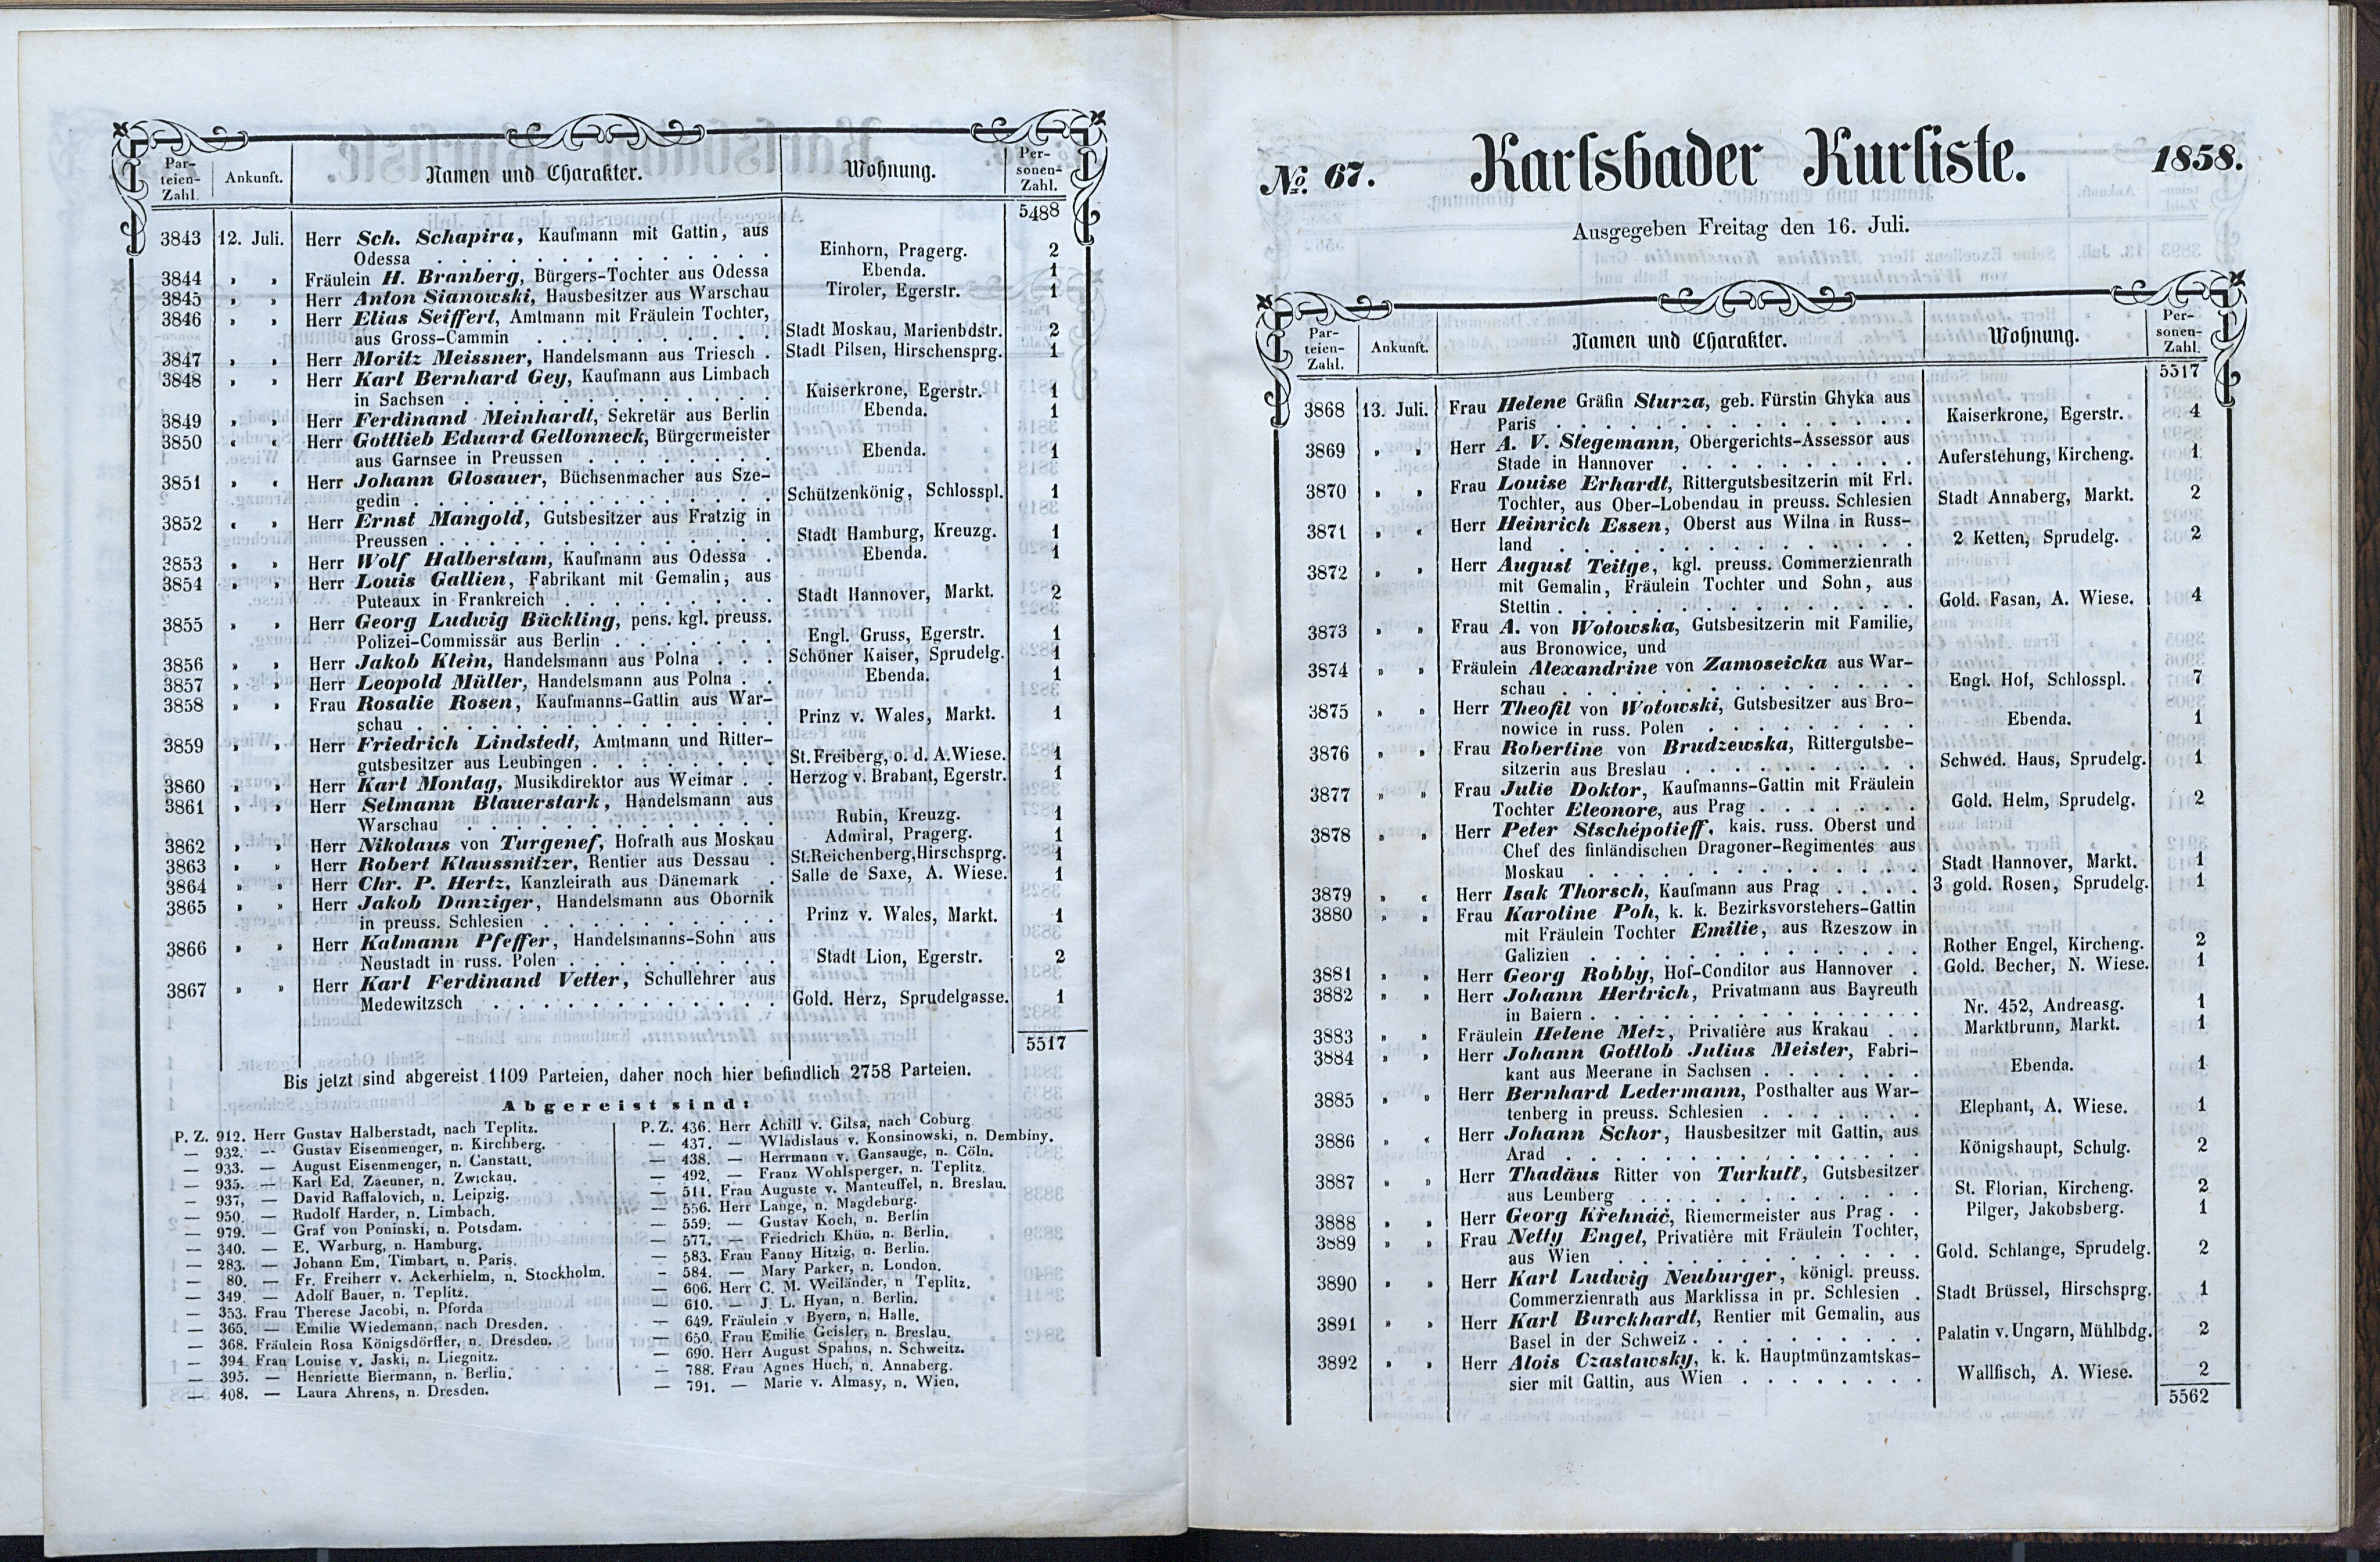 Par-
teien-
Zahl.
Ankunft.
Namen und Charakter.
Wohnung.
Per-
sonen-
Zahl.
5488
3843 12. Juli. Herr Sch. Schapira, Kaufmann mit Gattin, aus
Odessa . . . Einhorn, Pragerg. 2
3844 » » Fräulein H. Branberg, Bürgers-Tochter aus Odessa Ebenda. 1
3845 » » Herr Anton Sianowski, Hausbesitzer aus Warschau Tiroler, Egerstr. 1
3846 » » Herr Elias Seiffert, Amtmann mit Fräulein Tochter,
aus Gross-Cammin . . . Stadt Moskau, Marienbdstr. 2
3847 » » Herr Moritz Meissner, Handelsmann aus Triesch . Stadt Pilsen, Hirschensprg. 1
3848 » » Herr Karl Bernhard Gey, Kaufmann aus Limbach
in Sachsen . . . Kaiserkrone, Egerstr. 1
3849 » » Herr Ferdinand Meinhardt, Sekretär aus Berlin Ebenda. 1
3850 « « Herr Gottlieb Eduard Gellonneck, Bürgermeister
aus Garnsee in Preussen . . . Ebenda. 1
3851 » « Herr Johann Glosauer, Büchsenmacher aus Sze-
gedin . . . Schützenkönig, Schlosspl. 1
3852 « » Herr Ernst Mangold, Gutsbesitzer aus Fratzig in
Preussen . . . Stadt Hamburg, Kreuzg. 1
3853 » » Herr Wolf Halberstam, Kaufmann aus Odessa . Ebenda. 1
3854 » » Herr Louis Gallien, Fabrikant mit Gemalin, aus
Puteaux in Frankreich . . . Stadt Hannover, Markt. 2
3855 » » Herr Georg Ludwig Bückling, pens. kgl. preuss.
Polizei-Commissär aus Berlin . . . Engl. Gruss, Egerstr. 1
3856 » » Herr Jakob Klein, Handelsmann aus Polna . . . Schöner Kaiser, Sprudelg. 1
3857 » » Herr Leopold Müller, Handelsmann aus Polna . . Ebenda. 1
3858 » » Frau Rosalie Rosen, Kaufmanns-Gattin aus War-
schau . . . Prinz v. Wales, Markt. 1
3859 » » Herr Friedrich Lindstedt, Amtmann und Ritter-
gutsbesitzer aus Leubingen . . . St. Freiberg, o. d. A. Wiese. 1
3860 » » Herr Karl Montag, Musikdirektor aus Weimar . . Herzog v. Brabant, Egerstr. 1
3861 » » Herr Selmann Blauerstark, Handelsmann aus
Warschau . . . Rubin, Kreuzg. 1
3862 » » Herr Nikolaus von Turgenef, Hofrath aus Moskau Admiral, Pragerg. 1
3863 » » Herr Robert Klaussnitzer, Rentier aus Dessau . St. Reichenberg, Hirschsprg. 1
3864 » » Herr Chr. P. Hertz, Kanzleirath aus Dänemark . Salle de Saxe, A. Wiese. 1
3865 » » Herr Jakob Danziger, Handelsmann aus Obornik
in preuss. Schlesien . . . Prinz v. Wales, Markt. 1
3866 » » Herr Kalmann Pfeffer, Handelsmanns-Sohn aus
Neustadt in russ. Polen . . . Stadt Lion, Egerstr. 2
3867 » » Herr Karl Ferdinand Vetter, Schullehrer aus
Medewitzsch . . . Gold. Herz, Sprudelgasse. 1
5517
Bis jetzt sind abgereist 1109 Parteien, daher noch hier befindlich 2758 Parteien.
Abgereist sind:
P. Z. 912. Herr Gustav Halberstadt, nach Teplitz.
— 932. — Gustav Eisenmenger, n. Kirchberg.
— 933. — August Eisenmenger, n. Canstatt.
— 935. — Karl Ed. Zaeuner, n. Zwickau.
— 937, — David Raffalovich, n. Leipzig.
— 950. — Rudolf Harder, n. Limbach.
— 979. — Graf von Poninski, n. Potsdam.
— 340. — E. Warburg, n. Hamburg.
— 283. — Johann Em. Timbart, n. Paris.
— 80. — Fr. Freiherr v. Ackerhielm, n. Stockholm.
— 349. — Adolf Bauer, n. Teplitz.
— 353. Frau Therese Jacobi, n. Pforda
— 365. — Emilie Wiedemann, nach Dresden.
— 368. Fräulein Rosa Königsdörffer, n. Dresden.
— 394. Frau Louise v. Jaski, n. Liegnitz.
— 395. — Henriette Biermann, n. Berlin.
— 408. — Laura Ahrens, n. Dresden.
P. Z. 436. Herr Achill v. Gilsa, nach Coburg
— 437. — Wladislaus v. Konsinowski, n. Dembiny.
— 438. — Herrmann v. Gansauge, n. Cöln.
— 492. — Franz Wohlsperger, n. Teplitz.
— 511. Frau Auguste v. Manteuffel, n. Breslau.
— 556. Herr Lange, n. Magdeburg.
— 559. — Gustav Koch, n. Berlin
— 577. — Friedrich Khün, n. Berlin.
— 583. Frau Fanny Hitzig, n. Berlin.
— 584. — Mary Parker, n. London.
— 606. Herr C. M. Weiländer, n Teplitz.
— 610. — J. L. Hyan, n. Berlin.
— 649. Fräulein v Byern, n. Halle.
— 650. Frau Emilie Geisler, n. Breslau.
— 690. Herr August Spahns, n. Schweitz.
— 788. Frau Agnes Huch, n. Annaberg.
— 791. — Marie v. Almasy, n. Wien.
No. 67. Karlsbader Kurliste. 1858.
Ausgegeben Freitag den 16. Juli.
Par-
teien-
Zahl.
Ankunft.
Namen und Charakter.
Wohnung.
Per-
sonen-
Zahl.
5517
3868 13. Juli. Frau Helene Gräfin Sturza, geb. Fürstin Ghyka aus
Paris . . . Kaiserkrone, Egerstr. 4
3869 » » Herr A. V. Stegemann, Obergerichts-Assessor aus
Stade in Hannover . . . Auferstehung, Kircheng. 1
3870 » » Frau Louise Erhardt, Rittergutsbesitzerin mit Frl.
Tochter, aus Ober-Lobendau in preuss. Schlesien Stadt Annaberg, Markt. 2
3871 » « Herr Heinrich Essen, Oberst aus Wilna in Russ-
land . . . 2 Ketten, Sprudelg. 2
3872 » » Herr August Teitge, kgl. preuss. Commerzienrath
mit Gemalin, Fräulein Tochter und Sohn, aus
Stettin . . . Gold. Fasan, A. Wiese. 4
3873 » » Frau A. von Wołowska, Gutsbesitzerin mit Familie,
aus Bronowice, und
3874 » » Fräulein Alexandrine von Zamoseicka aus War-
schau . . . Engl. Hof, Schlosspl. 7
3875 » » Herr Theofil von Wołowski, Gutsbesitzer aus Bro-
nowice in russ. Polen . . . Ebenda. 1
3876 » » Frau Robertine von Brudzewska, Rittergutsbe-
sitzerin aus Breslau . . . Schwed. Haus, Sprudelg. 1
3877 » » Frau Julie Doktor, Kaufmanns-Gattin mit Fräulein
Tochter Eleonore, aus Prag . . . Gold. Helm, Sprudelg. 2
3878 » » Herr Peter Stschépotieff, kais. russ. Oberst und
Chef des finländischen Dragoner-Regimentes aus
Moskau . . . Stadt Hannover, Markt. 1
3879 » « Herr Isak Thorsch, Kaufmann aus Prag . . . 3 gold. Rosen, Sprudelg. 1
3880 » » Frau Karoline Poh, k. k. Bezirksvorstehers-Gattin
mit Fräulein Tochter Emilie, aus Rzeszow in
Galizien . . . Rother Engel, Kircheng. 2
3881 » » Herr Georg Robby, Hof-Conditor aus Hannover . Gold. Becher, N. Wiese. 1
3882 » » Herr Johann Hertrich, Privatmann aus Bayreuth
in Baiern . . . Nr. 452, Andreasg. 1
3883 » » Fräulein Helene Metz, Privatière aus Krakau . . Marktbrunn, Markt. 1
3884 » » Herr Johann Gottlob Julius Meister, Fabri-
kant aus Meerane in Sachsen . . . Ebenda. 1
3885 » » Herr Bernhard Ledermann, Posthalter aus War-
tenberg in preuss. Schlesien . . . Elephant, A. Wiese. 1
3886 » « Herr Johann Schor, Hausbesitzer mit Gattin, aus
Arad . . . Königshaupt, Schulg. 2
3887 » » Herr Thadäus Ritter von Turkułł, Gutsbesitzer
aus Lemberg . . . St. Florian, Kircheng. 2
3888 » » Herr Georg Křehnáč, Riemermeister aus Prag . . Pilger, Jakobsberg. 1
3889 » » Frau Netty Engel, Privatière mit Fräulein Tochter,
aus Wien . . . Gold. Schlange, Sprudelg. 2
3890 » » Herr Karl Ludwig Neuburger, königl. preuss.
Commerzienrath aus Marklissa in pr. Schlesien . Stadt Brüssel, Hirschsprg. 1
3891 » » Herr Karl Burckhardt, Rentier mit Gemalin, aus
Basel in der Schweiz . . . Palatin v. Ungarn, Mühlbdg. 2
3892 » » Herr Alois Czasławsky, k. k. Hauptmünzamtskas-
sier mit Gattin, aus Wien . . . Wallfisch, A. Wiese. 2
5562